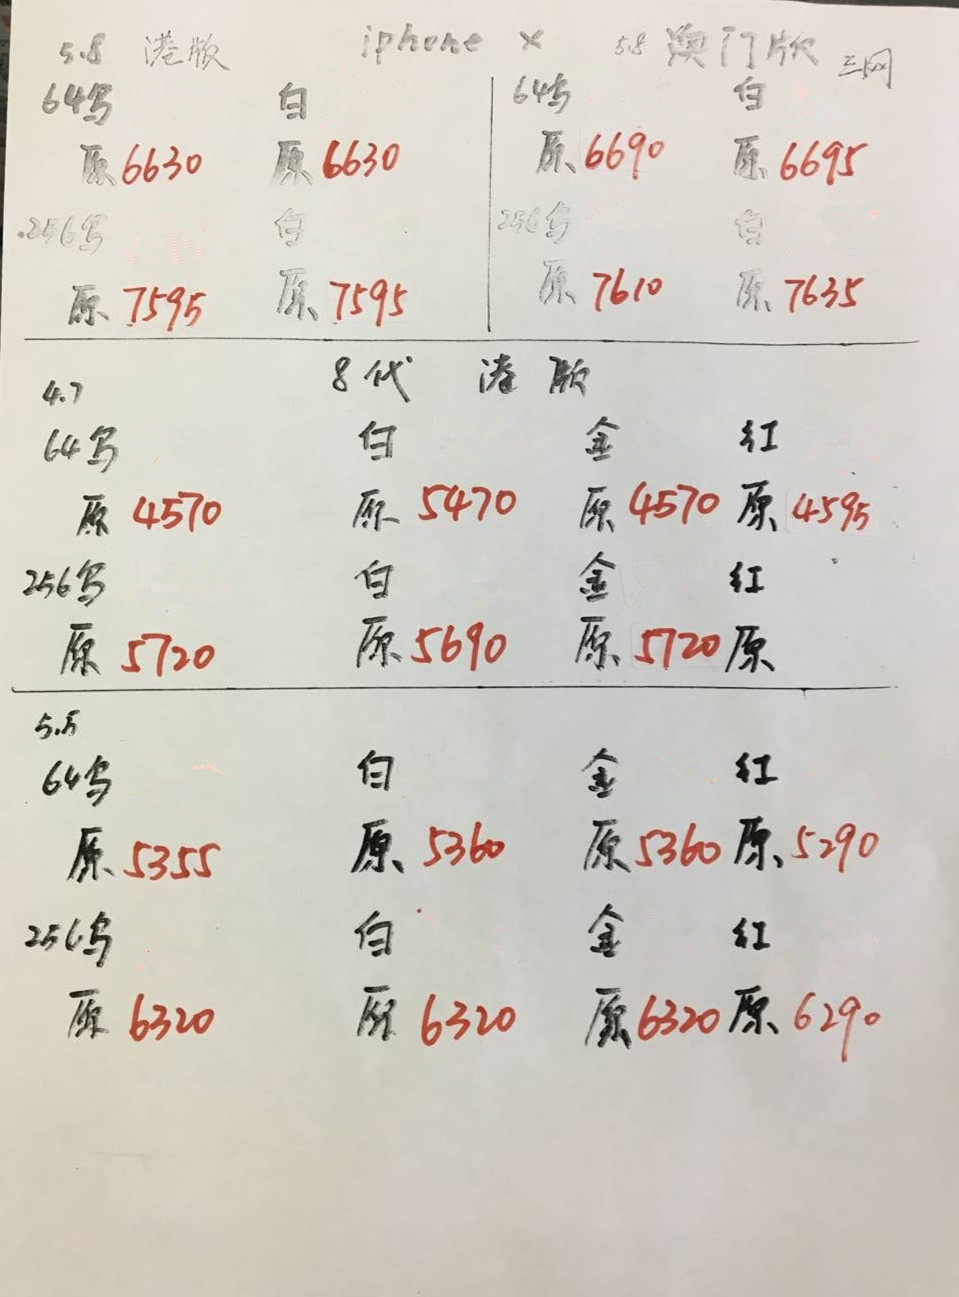 5.8 港版 iphone X 5.8 澳门版 三网
64乌 白 64乌 白
原 6630 原 6630 原 6690 原 6695
256乌 白 256乌 白
原 7595 原 7595 原 7610 原 7635
4.7 8代 港版
64乌 白 金 红
原 4570 原 5470 原 4570 原 4595
256乌 白 金 红
原 5720 原 5690 原 5720 原
5.5
64乌 白 金 红
原 5355 原 5360 原 5360 原 5290
256乌 白 金 红
原 6320 原 6320 原 6320 原 6290